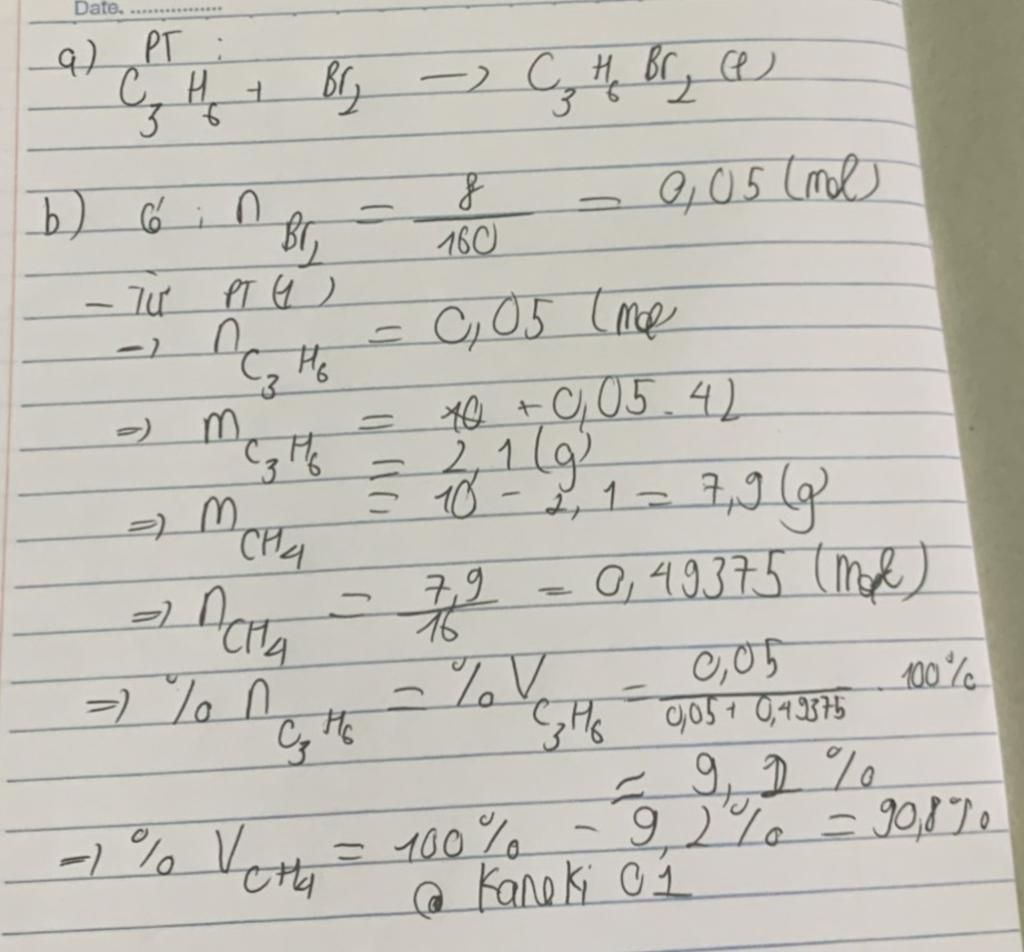 Date. ................
a) PT :
C₃H₆ + Br₂ → C₃H₆Br₂ (1)
b) Có : n Br₂ = 8/160 = 0,05 (mol)
- Từ PT (1)
→ n C₃H₆ = 0,05 (mol
⇒ m C₃H₆ = 0,05 . 42
= 2,1 (g)
⇒ m CH₄ = 10 - 2,1 = 7,9 (g)
⇒ n CH₄ = 7,9/16 = 0,49375 (mol)
⇒ % n C₃H₆ = % V C₃H₆ = 0,05/(0,05 + 0,49375) . 100%
= 9,2 %
⇒ % V CH₄ = 100% - 9,2% = 90,8%
@ Kaneki 01